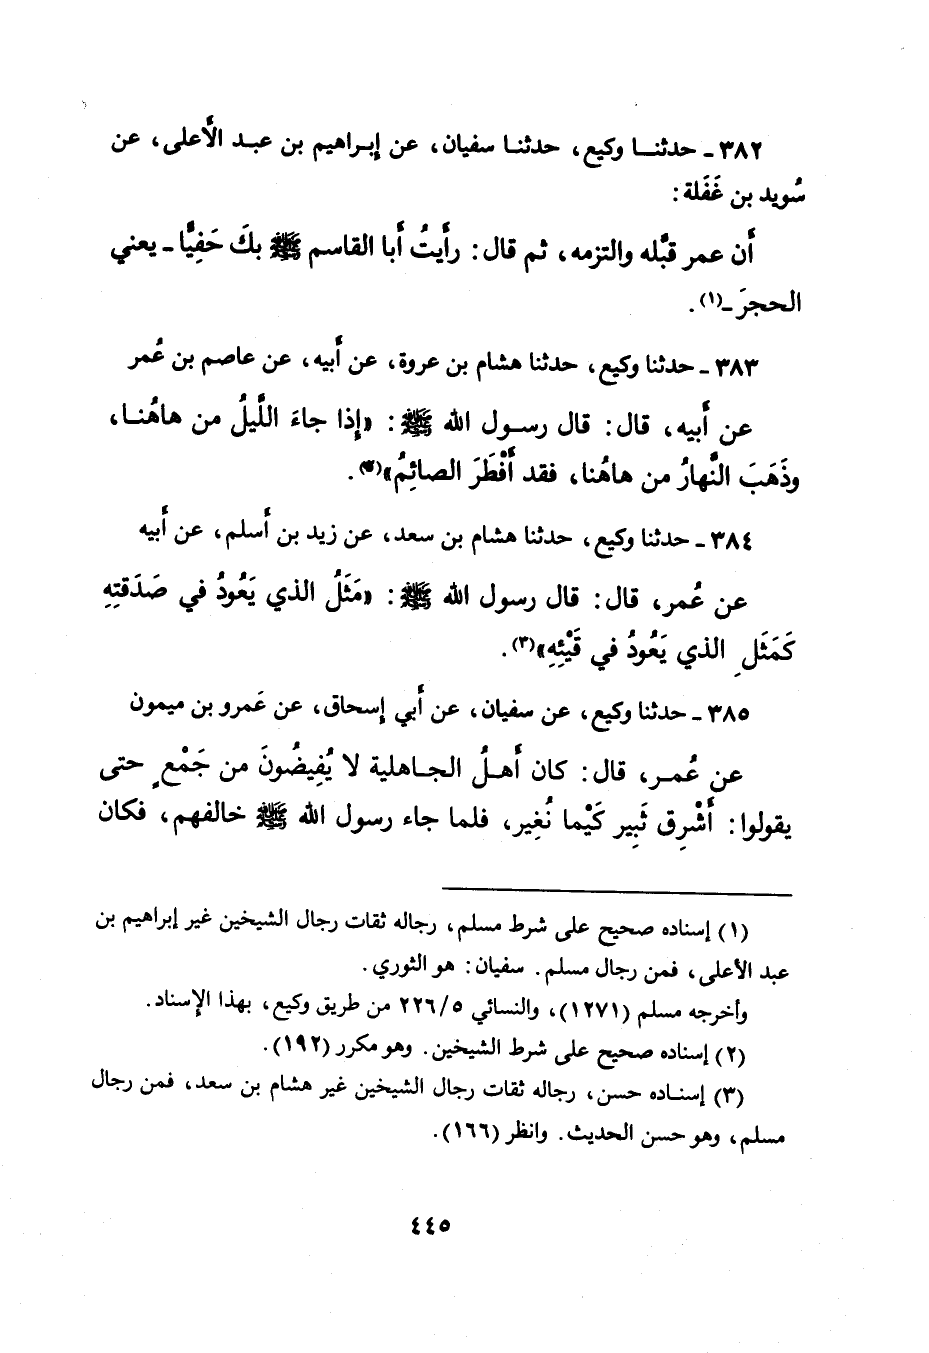 ٣٨٢ ـ حدثنـــا وكيع، حدثنـا سفيان، عن إبـراهيم بن عبـد الأعلى، عن
سُويد بن غَفَلة:
أَن عمر قبَّله والتزمه، ثم قال: رأَيتُ أَبا القاسم ﷺ بكَ حَفِيًّا ـ يعني
الحجرَ ـ(١).
٣٨٣ ـ حدثنا وكيع، حدثنا هشام بن عروة، عن أَبيه، عن عاصم بن عُمر
عن أَبيه، قال: قال رسـول الله ﷺ: «إِذا جاءَ اللَّيلُ من هاهُنـا،
وذَهَبَ النَّهارُ من هاهُنا، فقد أَفْطَرَ الصائِمُ»(٢).
٣٨٤ ـ حدثنا وكيع، حدثنا هشام بن سعد، عن زيد بن أَسلم، عن أَبيه
عن عُمر، قال: قال رسول الله ﷺ: «مَثَلُ الذي يَعُودُ في صَدَقتِهِ
كَمَثَلِ الذي يَعُودُ في قَيْئِهِ»(٣).
٣٨٥ ـ حدثنا وكيع، عن سفيان، عن أَبي إسحاق، عن عَمرو بن ميمون
عن عُمـر، قال: كان أَهـلُ الجـاهلية لا يُفِيضُونَ من جَمْعٍ حتى
يقولوا: أَشْرِق ثَبِير كَيْما نُغِير، فلما جاء رسول الله ﷺ خالفهم، فكان
(١) إسناده صحيح على شرط مسلم، رجاله ثقات رجال الشيخين غير إبراهيم بن
عبد الأعلى، فمن رجال مسلم. سفيان: هو الثوري.
وأخرجه مسلم (١٢٧١)، والنسائي ٢٢٦/٥ من طريق وكيع، بهذا الإسناد.
(٢) إسناده صحيح على شرط الشيخين. وهو مكرر (١٩٢).
(٣) إسنـاده حسن، رجاله ثقات رجال الشيخين غير هشام بن سعد، فمن رجال
مسلم، وهو حسن الحديث. وانظر (١٦٦).
٤٤٥